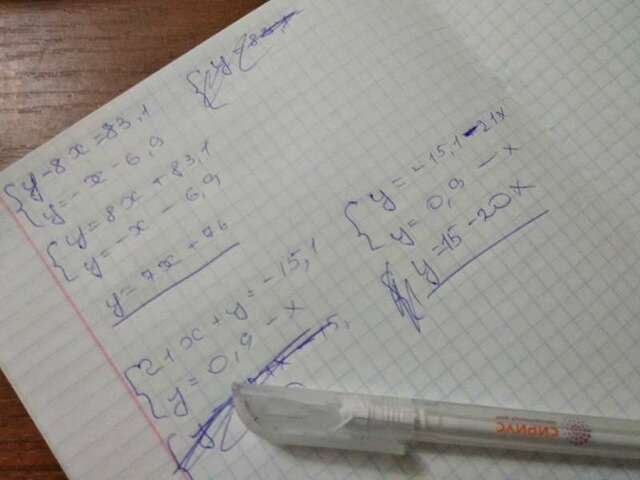 y-8x=83,1
y=-x-6,9
y=8x+83,1
y=-x-6,9
y=7x+76
21x+y=-15,1
y=0,9-x
y=-15,1-21x
y=0,9-x
y=15-20x
СИРИУС